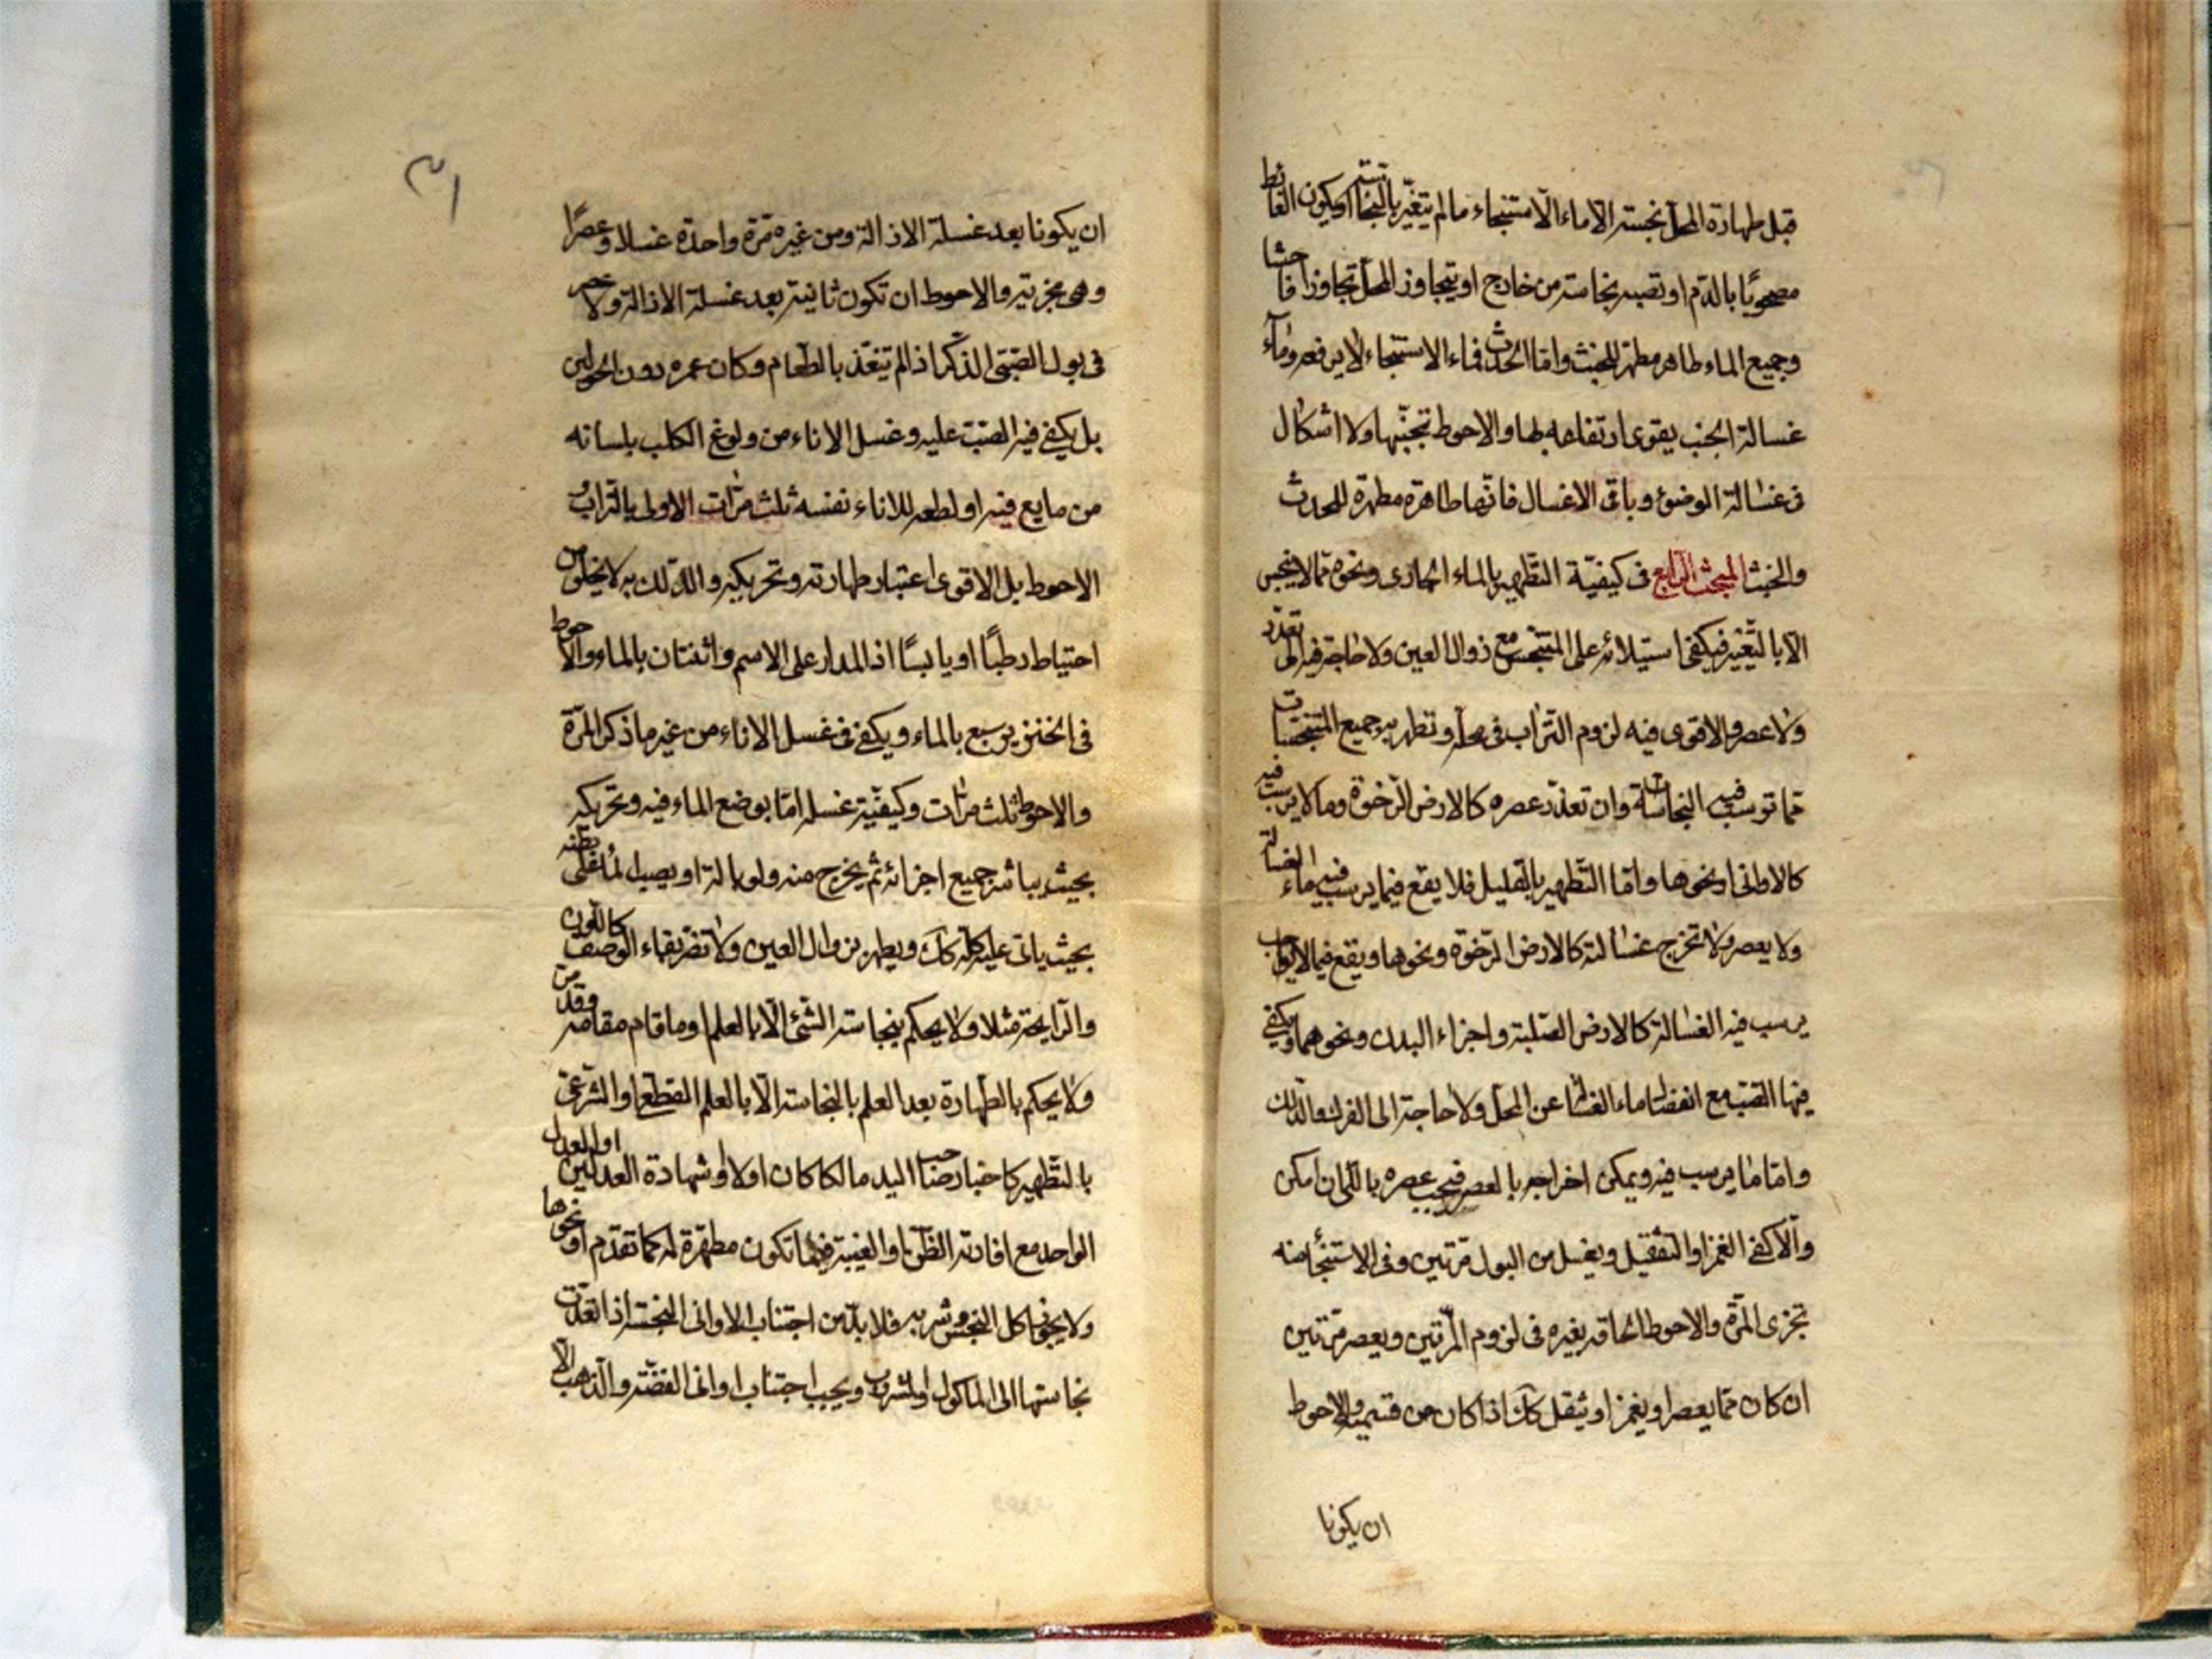 قبل طهارة المحل نجسة الا ماء الاستنجاء ما لم يتغير بالنجاسة او يكون الغائط
مصحوبًا بالدم او تصبه نجاسة من خارج او يتجاوز المحل تجاوزا فاحشا
وجميع الماء طاهر مطهر للخبث واما الحدث فماء الاستنجاء لا يرفعه وماء
غسالة الجنب يقوى ارتفاعه بها والاحوط تجنبها ولا اشكال
فى غسالة الوضوء وباقى الاغسال فانها طاهرة مطهرة للحدث
والخبث المبحث الرابع فى كيفية التطهير بالماء الجارى ونحوه مما لا ينجس
الا بالتغير فيكفى استيلائه على المتنجس مع زوال العين ولا حاجة فيه الى تعدد
ولا عصر والاقوى فيه لزوم التراب فى محله وتطهر به جميع المتنجسات
مما ترسب فيه النجاسة وان تعذر عصره كالارض الرخوة وما لا يرسب فيه
كالاوانى ونحوها واما التطهير بالقليل فلا يقع فيما يرسب فيه ماء الغسالة
ولا يعصر ولا تخرج غسالته كالارض الرخوة ونحوها ويقع فيما لا
يرسب فيه الغسالة كالارض الصلبة واجزاء البدن ونحوهما ويكفى
فيها الصب مع انفصال ماء الغسالة عن المحل ولا حاجة الى الفرك والدلك
واما ما يرسب فيه ويمكن اخراجه بالعصر فيجب عصره بالكل ان امكن
والا كفى الغمز او التثقيل ويغسل من البول مرتين وفى الاستنجاء منه
تجزى المرة والاحوط الحاقه بغيره فى لزوم المرتين ويعصر مرتين
ان كان مما يعصر او يغمز او يثقل كك اذا كان من قسميه والاحوط
ان يكونا
٣١
ان يكونا بعد غسلة الازالة ومن غيره مرة واحدة غسلا وعصرًا
وهى مجزية والاحوط ان تكون ثانية بعد غسلة الازالة ولا عصر
فى بول الصبى الذكر اذا لم يتغذ بالطعام وكان عمره دون الحولين
بل يكفى فيه الصب عليه وغسل الاناء من ولوغ الكلب بلسانه
من مايع فيه او لطعه للاناء نفسه ثلث مرات الاولى بالتراب و
الاحوط بل الاقوى اعتبار طهارته وتحريكه والدلك به لا يخلو من
احتياط رطبًا او يابسًا اذ المدار على الاسم واثنتان بالماء والاحوط
فى الخنزير سبع بالماء ويكفى فى غسل الاناء من غير ما ذكر المرة
والاحوط ثلث مرات وكيفية غسله اما بوضع الماء فيه وتحريكه
بحيث يباشر جميع اجزائه ثم يخرج منه ولو بالة او يصب
بحيث ياتى عليه كله كك ويطهر بزوال العين ولا تضر بقاء الوصف كاللون
والرايحة مثلا ولا يحكم بنجاسة الشئ الا بالعلم او ما قام مقامه وقد مر
ولا يحكم بالطهارة بعد العلم بالنجاسة الا بالعلم القطعى او الشرعى
بالتطهير كاخبار صاحب اليد مالكا كان اولا او شهادة العدلين او العدل
الواحد مع افادته الظن او الغيبة فيما تكون مطهرة له كما تقدم او نحوها
ولا يجوز اكل النجس وشربه فلا بد من اجتناب الاوانى النجسة اذا تعدت
نجاستها الى الماكول او المشروب ويجب اجتناب اوانى الفضة والذهب الا